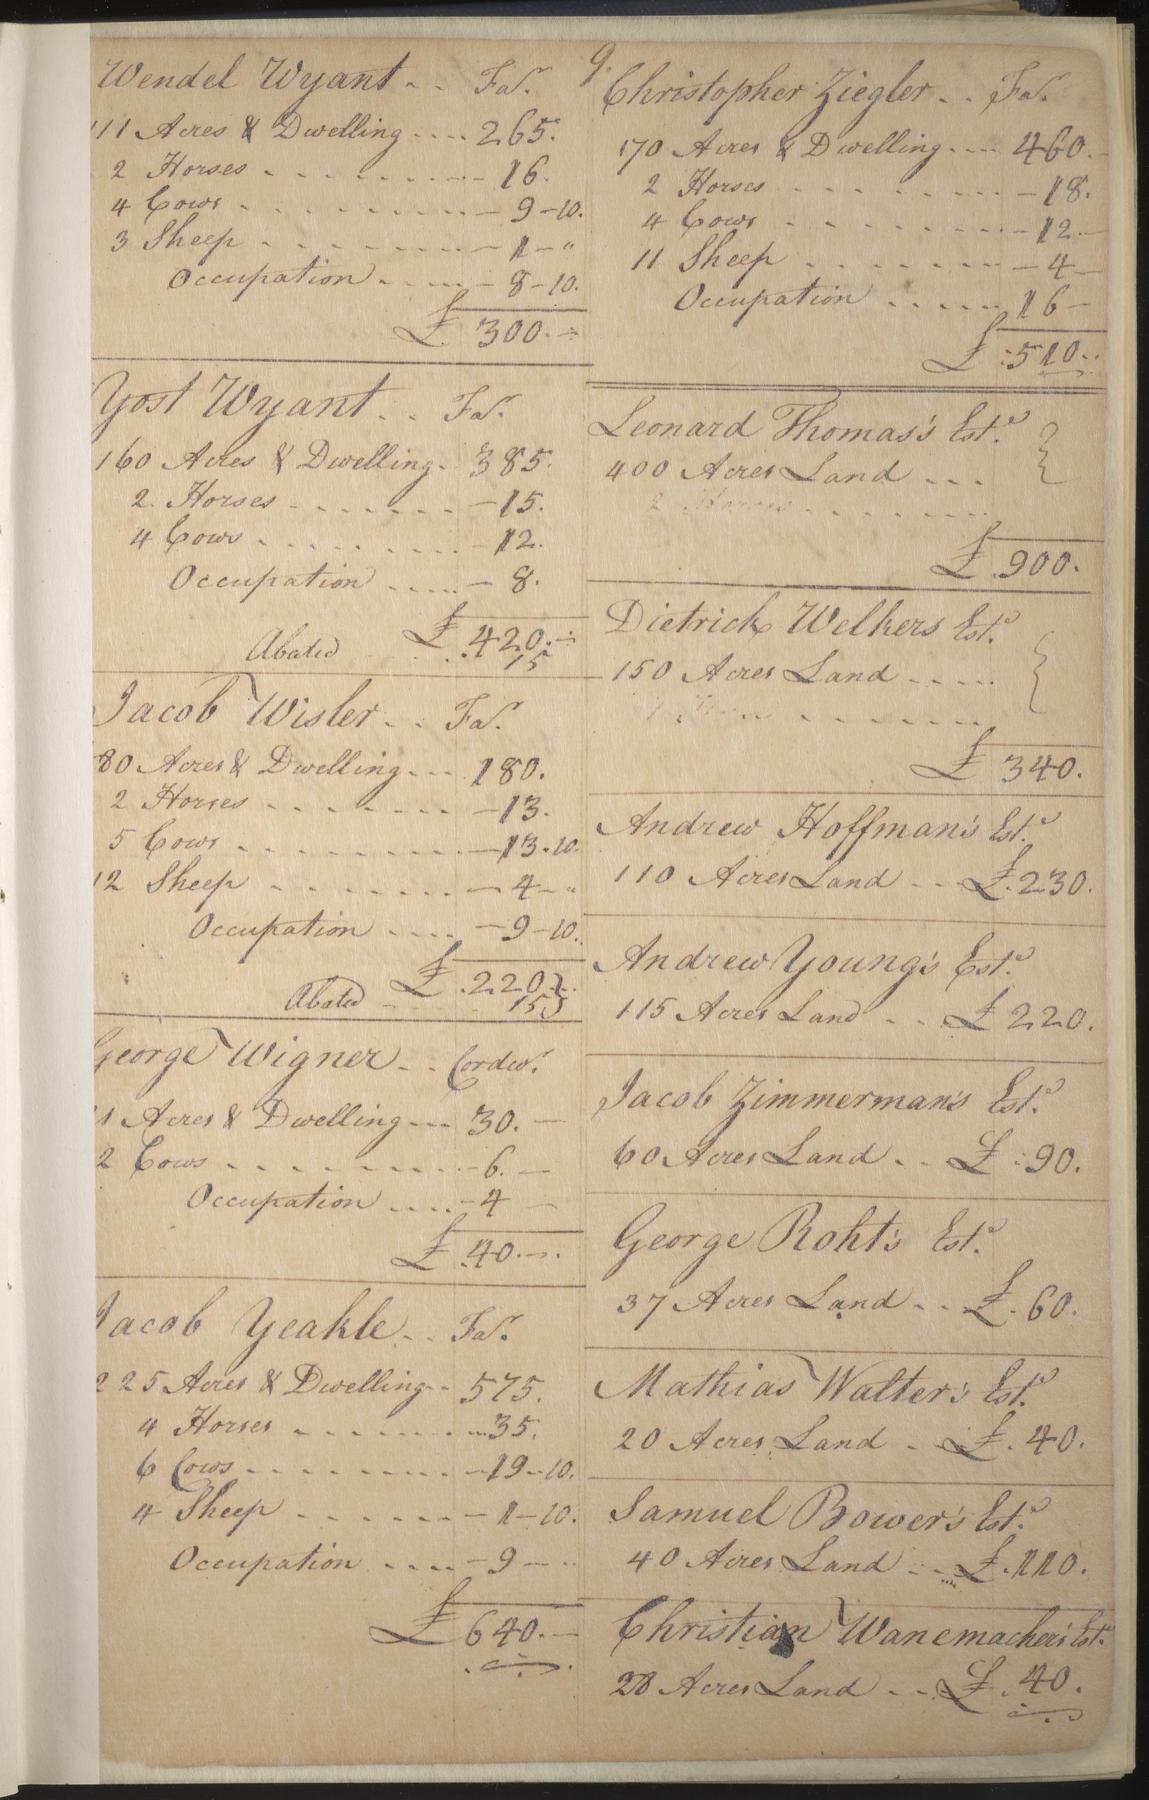 Wendel Wyant .. Far.
111 Acres & Dwelling .... 265.
2 Horses ......... 16.
4 Cows ......... 9-10.
3 Sheep ......... 1-"
Occupation ..... 8-10.
£ 300.-
Yost Wyant .. Far.
160 Acres & Dwelling . 385.
2 Horses ....... 15.
4 Cows ........ 12.
Occupation ..... 8.
£ 420.-
Abated 15
Jacob Wisler .. Far.
80 Acres & Dwelling ... 180.
2 Horses ....... 13.
5 Cows ......... 13.10.
12 Sheep ....... 4-"
Occupation .... 9-10.
£ 220.
Abated 15
George Wigner .. Cordwr.
Acres & Dwelling ... 30.-
2 Cows ........ 6.-
Occupation .... 4-
£ 40.-
Jacob Yeakle .. Far.
225 Acres & Dwelling .. 575.
4 Horses ....... 35.
6 Cows ........ 19-10.
4 Sheep ....... 1-10.
Occupation .... 9-
£ 640.-
9.
Christopher Ziegler .. Far.
170 Acres & Dwelling .... 460.-
2 Horses ........ 18.
4 Cows ......... 12-
11 Sheep ........ 4-
Occupation ..... 16-
£ 510..
Leonard Thomas's Estd.
400 Acres Land ...
2 Horses ........
£ 900.
Dietrick Welkers Estd.
150 Acres Land .....
£ 340.
Andrew Hoffman's Estd.
110 Acres Land .. £ 230.
Andrew Young's Estd.
115 Acres Land .. £ 220.
Jacob Zimmerman's Estd.
60 Acres Land .. £ 90.
George Roht's Estd.
37 Acres Land .. £ 60.
Mathias Walter's Estd.
20 Acres Land .. £ 40.
Samuel Bower's Estd.
40 Acres Land .. £ 110.
Christian Wanemacher's Est.
28 Acres Land .. £ 40.